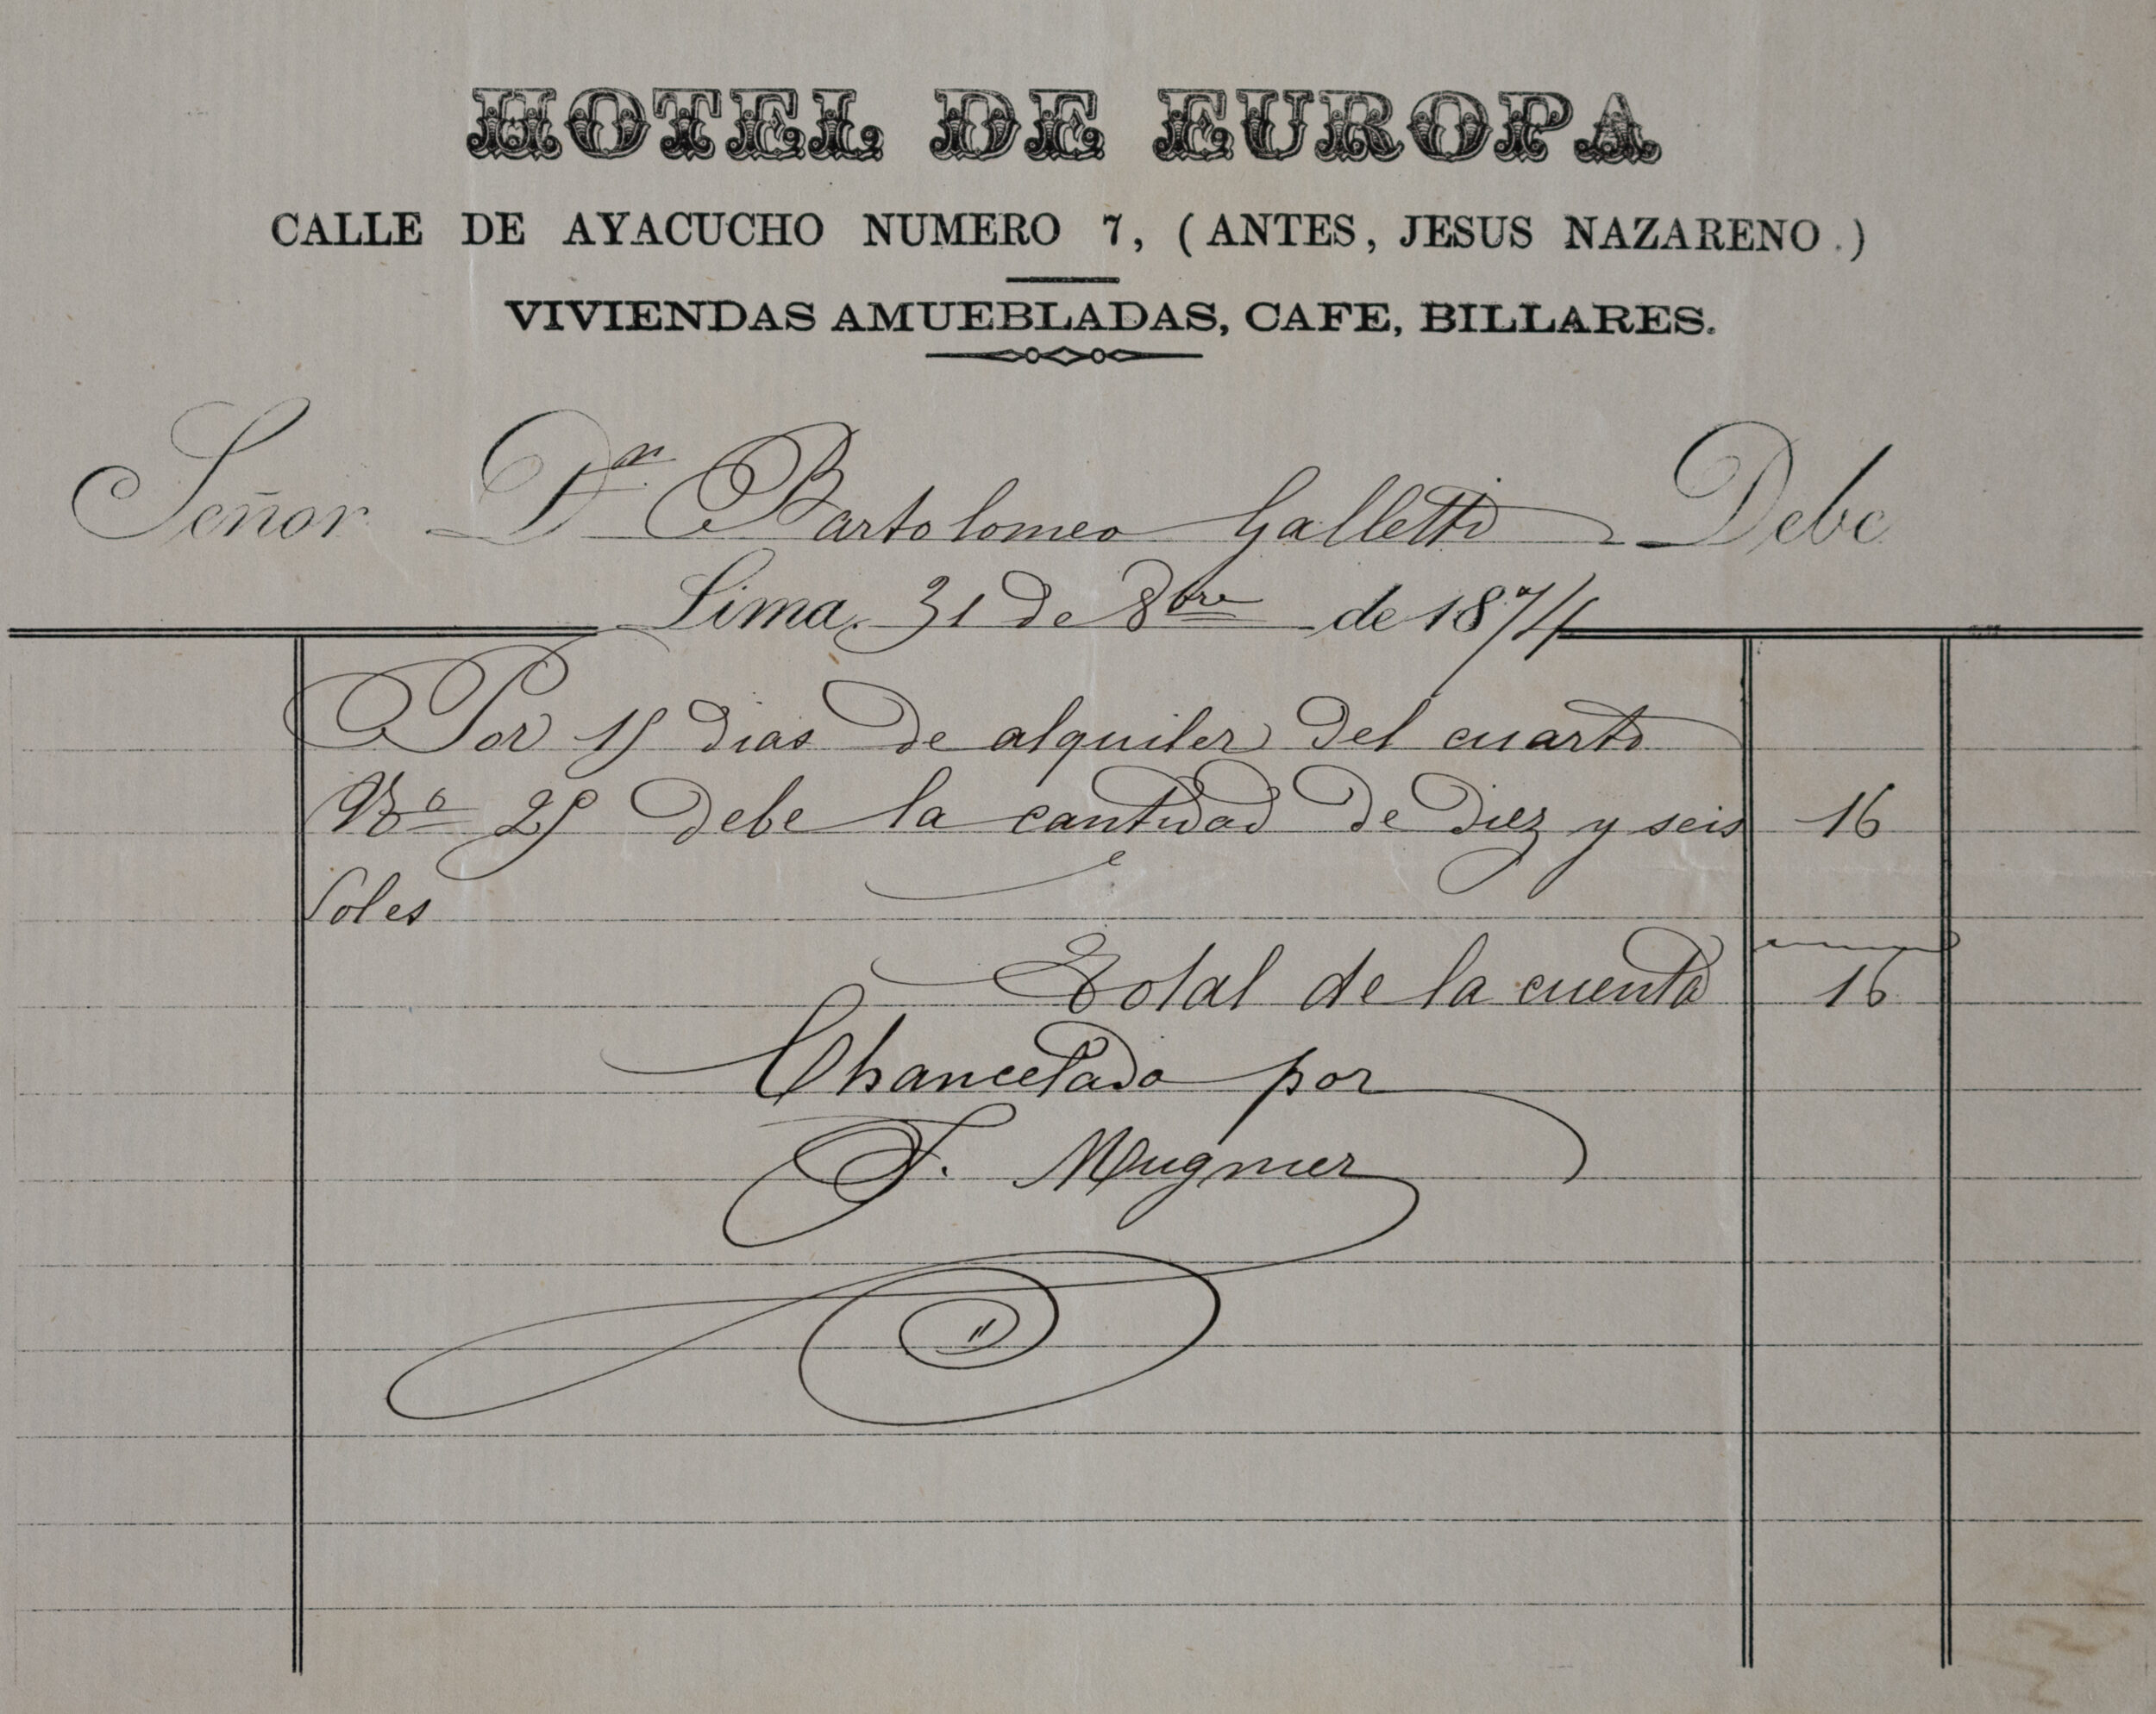 HOTEL DE EUROPA
CALLE DE AYACUCHO NUMERO 7, (ANTES, JESUS NAZARENO.)
VIVIENDAS AMUEBLADAS, CAFE, BILLARES.
Señor Dn Bartolomeo Galletti Debe
Lima. 31 de 8bre de 1874
Por 15 dias de alquiler del cuarto
No 25 debe la cantidad de diez y seis 16
Soles
Total de la cuenta 16
Chancelado por
F. Mugnier